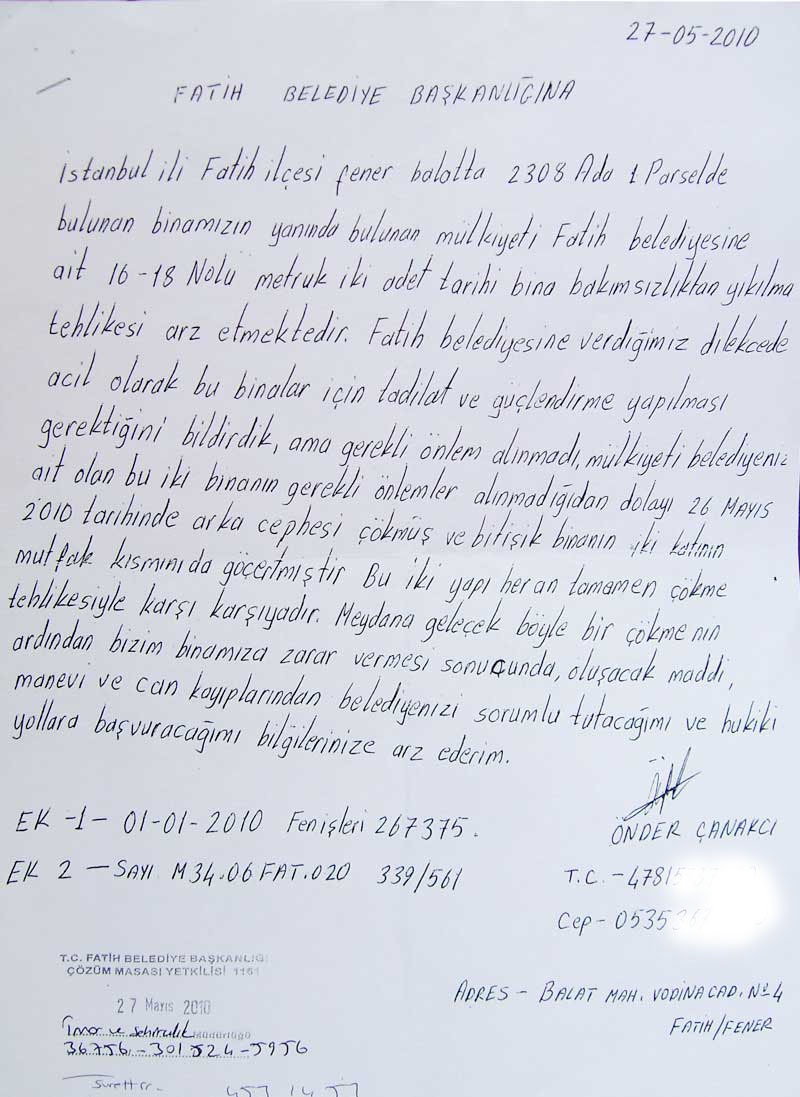 27-05-2010
FATİH BELEDİYE BAŞKANLIĞINA
istanbul ili Fatih ilçesi fener balatta 2308 Ada 1 Parselde
bulunan binamızın yanında bulunan mülkiyeti Fatih belediyesine
ait 16-18 Nolu metruk iki adet tarihi bina bakımsızlıktan yıkılma
tehlikesi arz etmektedir. Fatih belediyesine verdiğimiz dilekcede
acil olarak bu binalar için tadilat ve güçlendirme yapılması
gerektiğini bildirdik, ama gerekli önlem alınmadı, mülkiyeti belediyeniz
ait olan bu iki binanın gerekli önlemler alınmadığıdan dolayı 26 MAYIS
2010 tarihinde arka cephesi çökmüş ve bitişik binanın iki katının
mutfak kısmını da göçertmiştir Bu iki yapı her an tamamen çökme
tehlikesiyle karşı karşıyadır. Meydana geleçek böyle bir çökme nin
ardından bizim binamıza zarar vermesi sonuçunda, oluşacak maddi,
manevi ve can kayıplarından belediyenizi sorumlu tutacağımı ve hukiki
yollara başvuracağımı bilgilerinize arz ederim.
ÖNDER ÇANAKCI
EK -1- 01-01-2010 Fen işleri 267375.
EK 2 - SAYI M34.06 FAT.020 339/561
T.C. - 4781
Cep - 0535
T.C. FATİH BELEDİYE BAŞKANLIĞI
ÇÖZÜM MASASI YETKİLİSİ 1161
27 Mayıs 2010
İmar ve Şehircilik Müdürlüğü
36756-301524-5956
ADRES - BALAT MAH. VODİNA CAD. No 4
FATİH/FENER